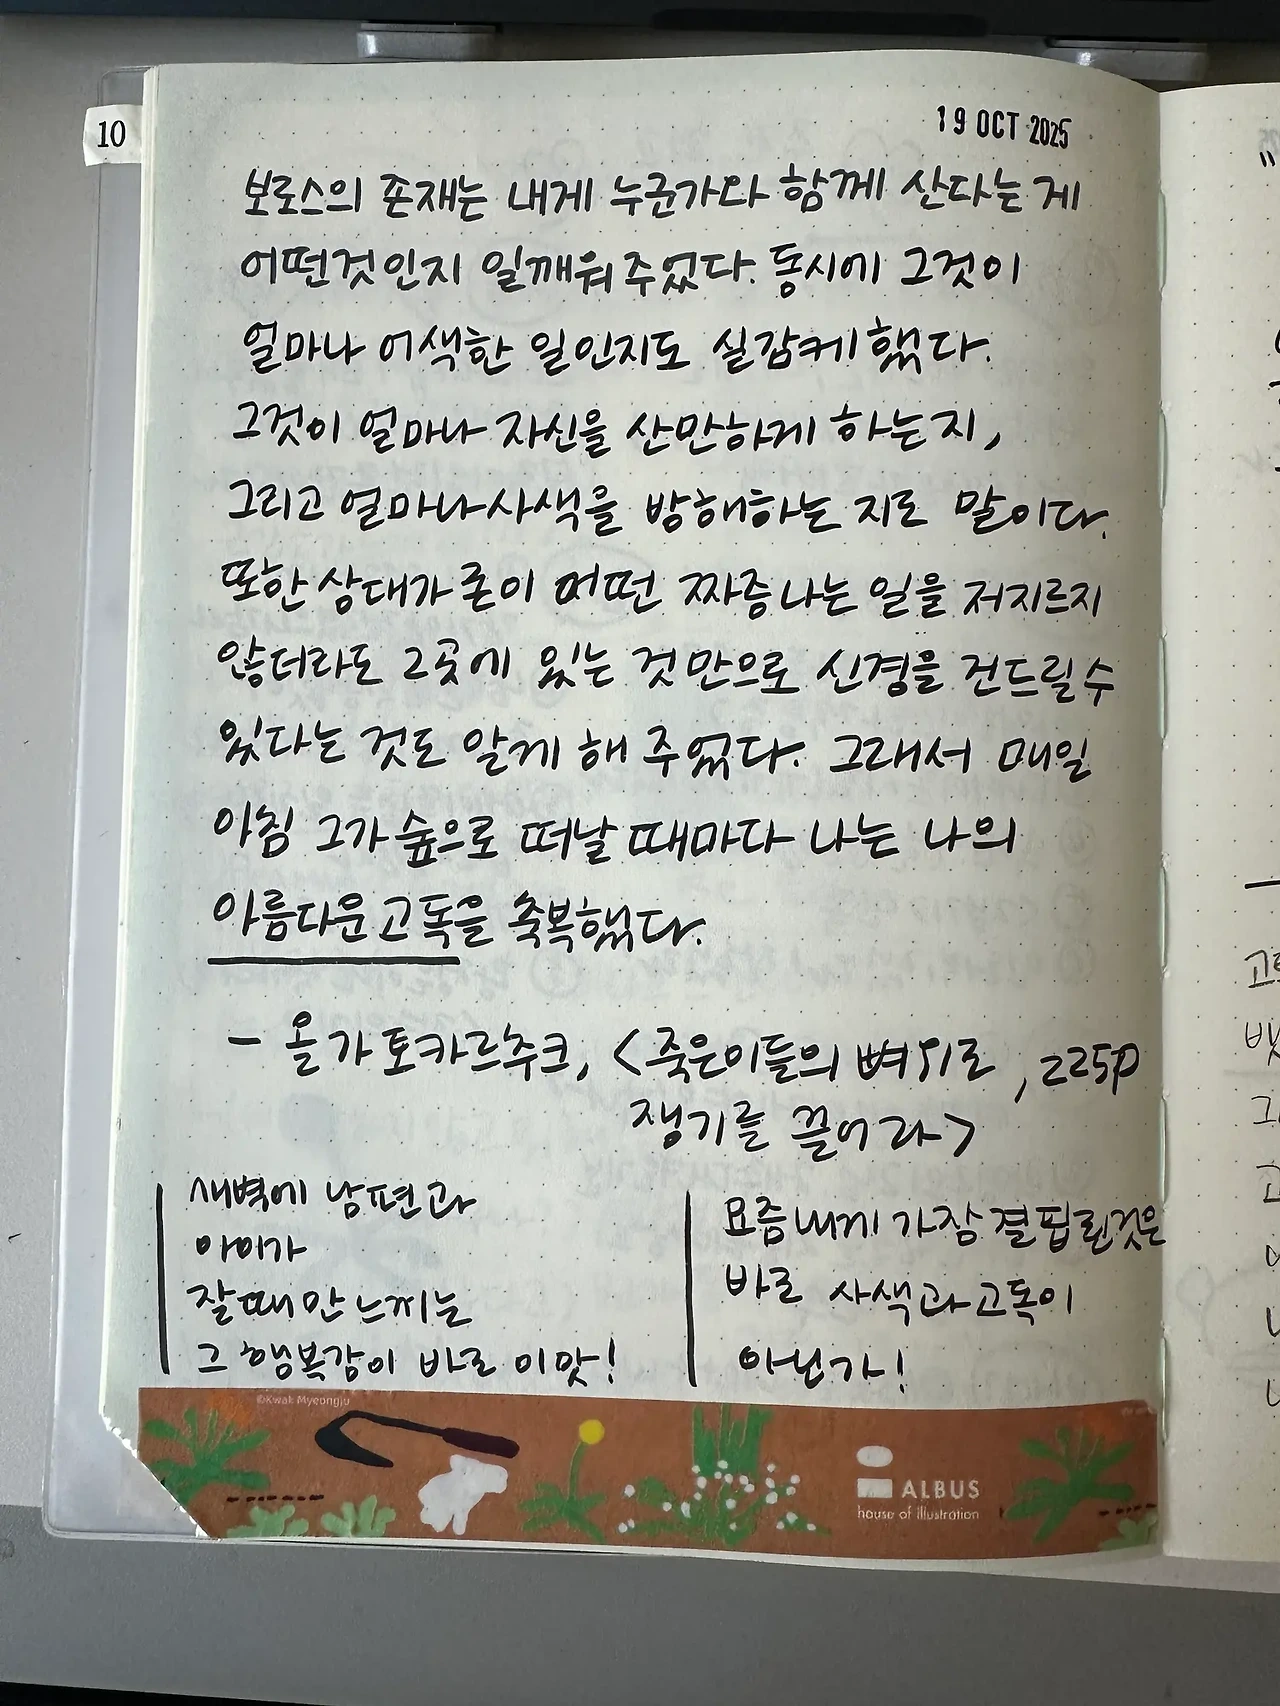 10
19 OCT 2025
보로스의 존재는 내게 누군가와 함께 산다는 게
어떤것인지 일깨워 주었다. 동시에 그것이
얼마나 어색한 일인지도 실감케 했다.
그것이 얼마나 자신을 산만하게 하는지,
그리고 얼마나 사색을 방해하는 지도 말이다.
또한 상대가 굳이 어떤 짜증나는 일을 저지르지
않더라도 그곳에 있는 것 만으로 신경을 건드릴 수
있다는 것도 알게 해 주었다. 그래서 매일
아침 그가 숲으로 떠날 때마다 나는 나의
아름다운 고독을 축복했다.
- 올가 토카르추크, <죽은이들의 뼈 위로 , 225p
쟁기를 끌어라>
새벽에 남편과
아이가
잘때만 느끼는
그 행복감이 바로 이맛!
요즘 내게 가장 결핍된것은
바로 사색과 고독이
아닌가!
©Kwak Myeongju
ALBUS
house of illustration